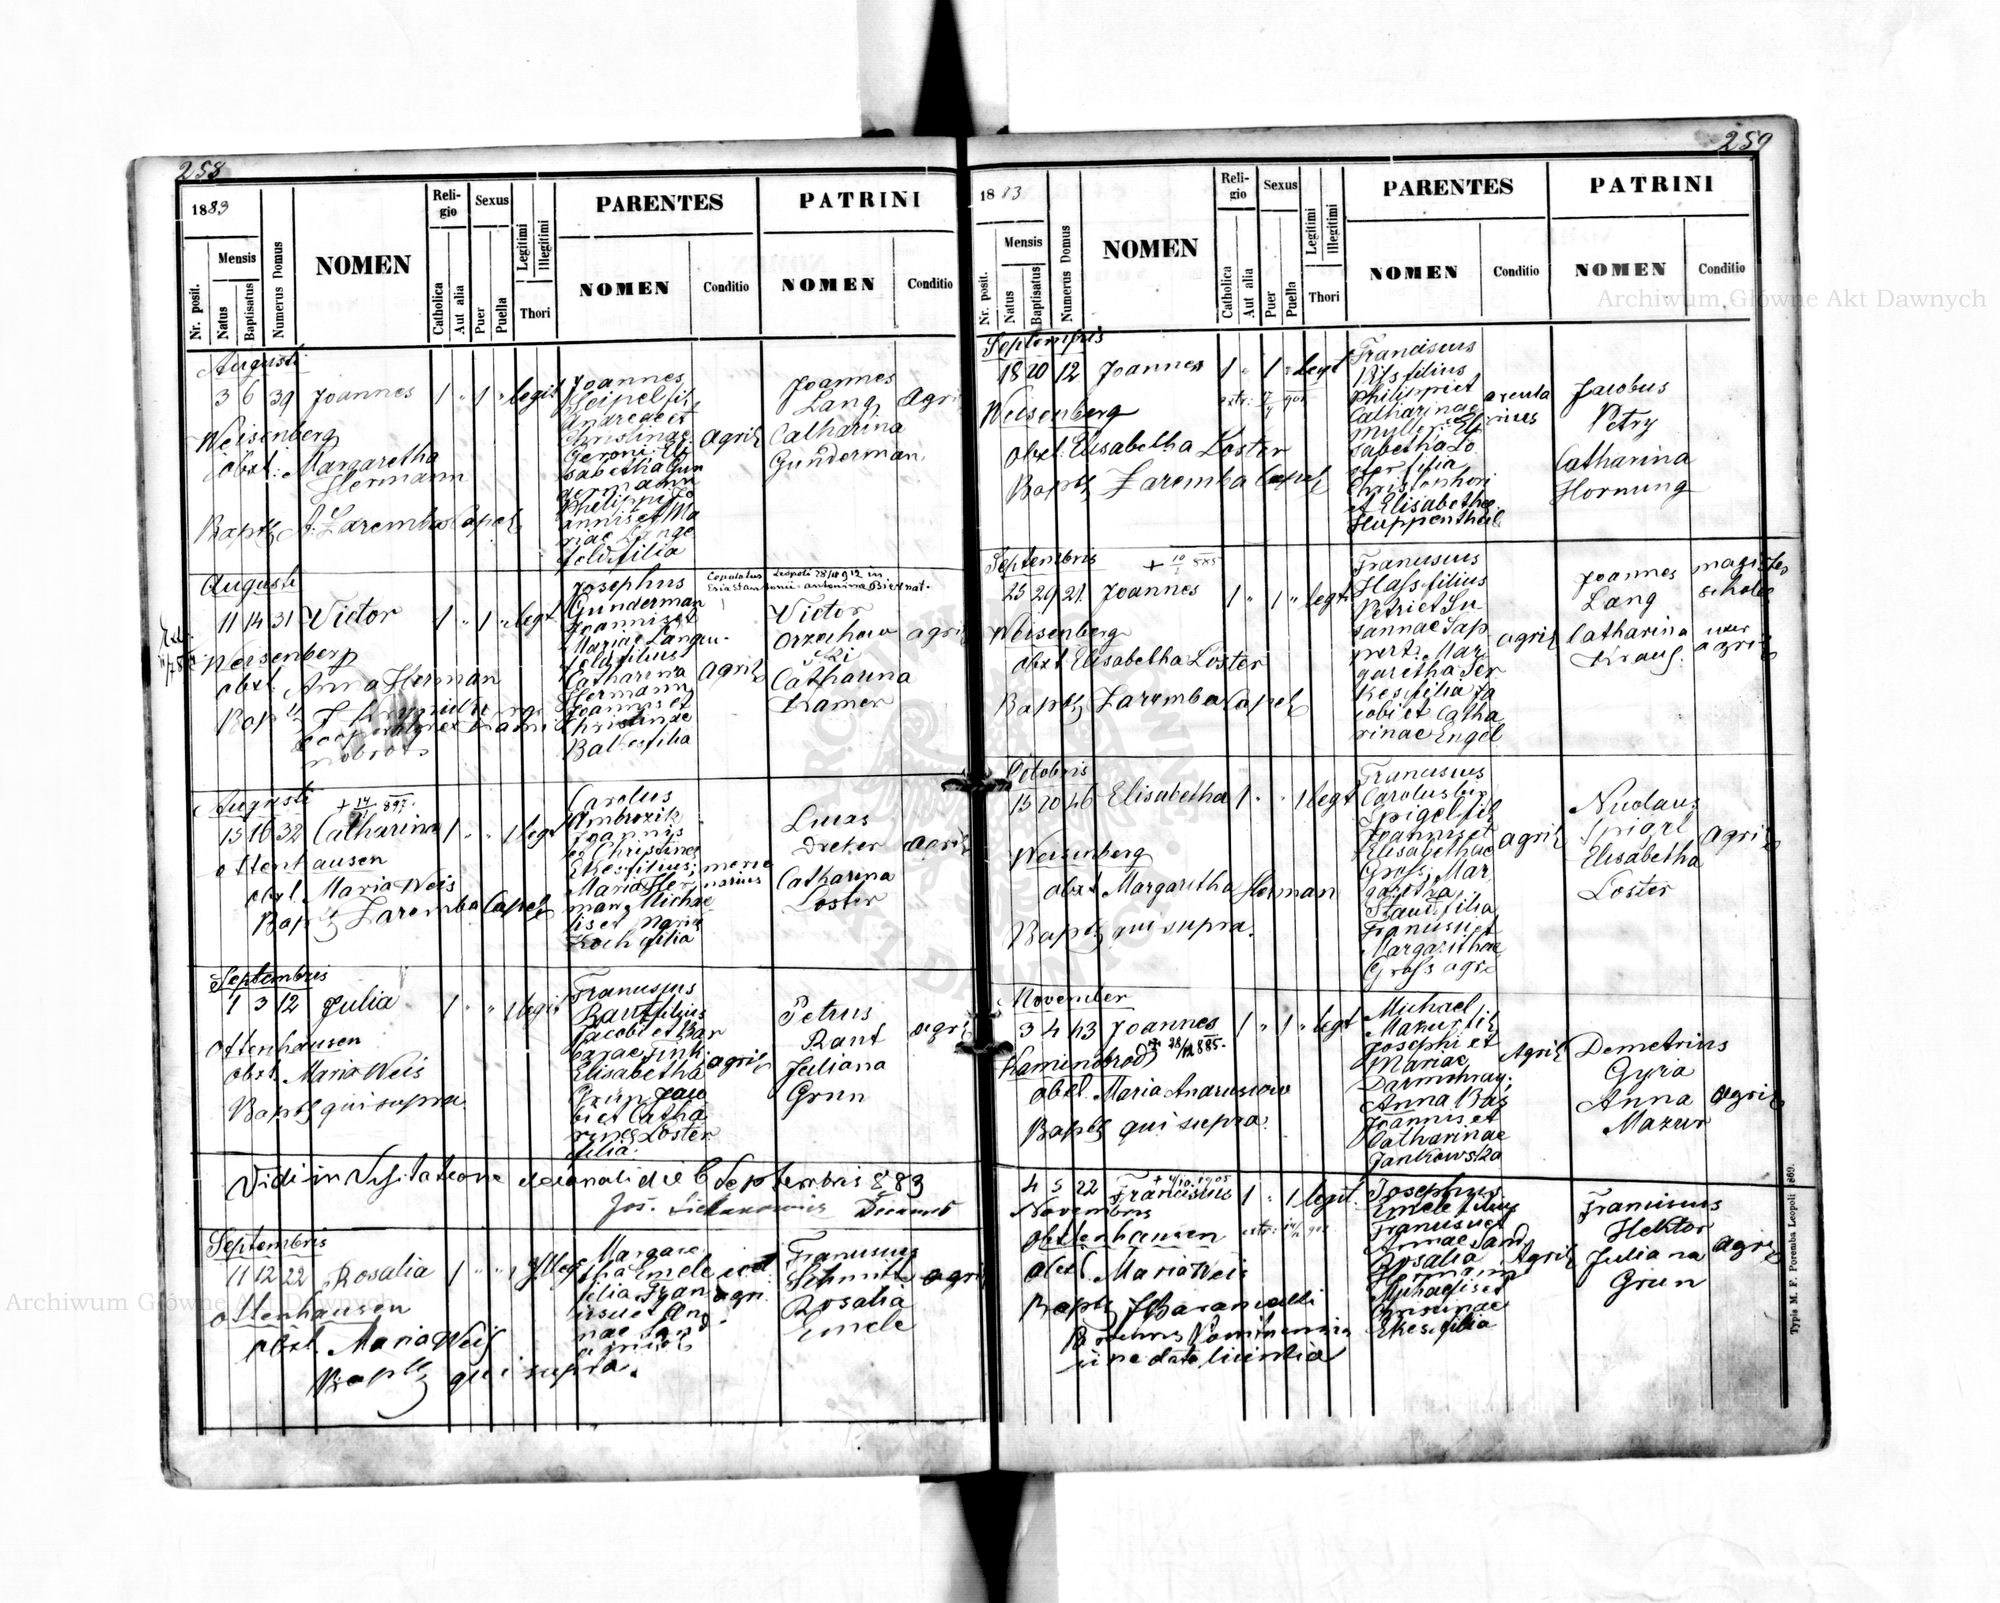 258
1883
Nr. posit.
Mensis
Natus
Baptisatus
Numerus Domus
NOMEN
Reli-
gio
Catholica
Aut alia
Sexus
Puer
Puella
Legitimi
Illegitimi
Thori
PARENTES
NOMEN
Conditio
PATRINI
NOMEN
Conditio
Augusti
3 6 39 Joannes 1 " 1 " legit
Weisenberg
obst: Margaretha
Hermann
Bapt A. Zaremba Capel
Joannes
Heipel fil
Andreae et
Christinae
Geroni: Eli
sabetha Gun
dermann
Philippi Jo
annis et Ma
riae Lange
feld filia
agric
Joannes
Lang
Catharina
Gunderman
agric
Augusti
11 14 31 Victor 1 " 1 " legt
Weisenberg
obst. Anna Herman
Josephus
Gunderman
Joannis et
Mariae Langen
feld filius
Catharina
Hermann
Joannis et
Christinae
filia
agric
Copulatus Leopoli 28/4 912 in
Victor
Catharina
Kramer
agric
Augusti
+ 14 897.
15 16 32 Catharina 1 " " 1 legt
ottenhausen
obst. Maria Weis
Bapt Zaremba Capel
Carolus
Ambrozik
Joannis
et Christinae
Ekes filius;
Maria Her
man Michae
lis et Mariae
Koch filia
merce
narius
Lucas
Dreher
Catharina
Loster
agric
Septembris
1 3 12 Julia 1 " " 1 legit
Ottenhausen
obst. Maria Weis
Bapt qui supra
Franciscus
Rant filius
Jacobi et Bar
barae Fink
Elisabetha
Grün Jaco
bi et Catha
rinae Loster
filia.
agric
Petrus
Rant
Juliana
Grun
agric
Vidi in Visitatione decanali die 6 Septembris 883
Septembris
11 12 22 Rosalia 1 " " 1 Illeg
Ottenhausen
obst. Maria Weis
Bapt qui supra.
Margare
tha Emele
filia Fran
cisci et An
nae Sand
agri
Franciscus
Schmitt
Rosalia
Emele
agric
259
1883
Nr. posit.
Mensis
Natus
Baptisatus
Numerus Domus
NOMEN
Reli-
gio
Catholica
Aut alia
Sexus
Puer
Puella
Legitimi
Illegitimi
Thori
PARENTES
NOMEN
Conditio
PATRINI
NOMEN
Conditio
Septembris
18 20 12 Joannes 1 " 1 " legt
Weisenberg
obst. Elisabetha Loster
Bapt Zaremba Capel
Franciscus
filius
Philippi et
Catharinae
Müller Eli
sabetha Lo
ster filia
Christophori
et Elisabethae
Huppenthal
arcula
rius
Jacobus
Petry
Catharina
Hornung
Septembris
+ 10 885
25 29 21 Joannes 1 " 1 " legt
Weisenberg
obst Elisabetha Loster
Bapt Zaremba Capel
Franciscus
Hass filius
Petri et Su
sannae Sap
pert. Mar
garetha Ser
kes filia Ja
cobi et Catha
rinae Engel
agric
Joannes
Lang
Catharina
Kraus.
magister
scholae
uxor
agric
Octobris
15 20 46 Elisabetha 1 " " 1 legt
Weisenberg
obst Margaretha Herman
Bapt qui supra.
Franciscus
Carolus
Spigel fil
Joannis et
Elisabethae
Gross, Mar
garetha
filia
Francisci et
Margarithae
Gross agri
agric
Nicolaus
Spigel
Elisabetha
Loster
agric
November
3 4 43 Joannes 1 " 1 " legt
+ 28/12 885.
Kaminobrod
obst. Maria
Bapt qui supra.
Michael
Mazur fil
Josephi et
Mariae
Anna Bas
Joannis et
Catharinae
Jankowska
Agric
Demetrius
Gyra
Anna
Mazur
agric
4 5 22 Franciscus 1 " 1 legit.
Novembris
Ottenhausen
obst. Maria Weis
data licentia
Josephus
Emele filius
Francisci et
Annae Sand
Rosalia
Hermann
Michaelis et
Christinae
Ekes filia
Agric
Franciscus
Hektor
Juliana
Grun
agric
Typis M. F. Poremba Leopoli 869.
Archiwum Główne Akt Dawnych
Archiwum Główne Akt Dawnych